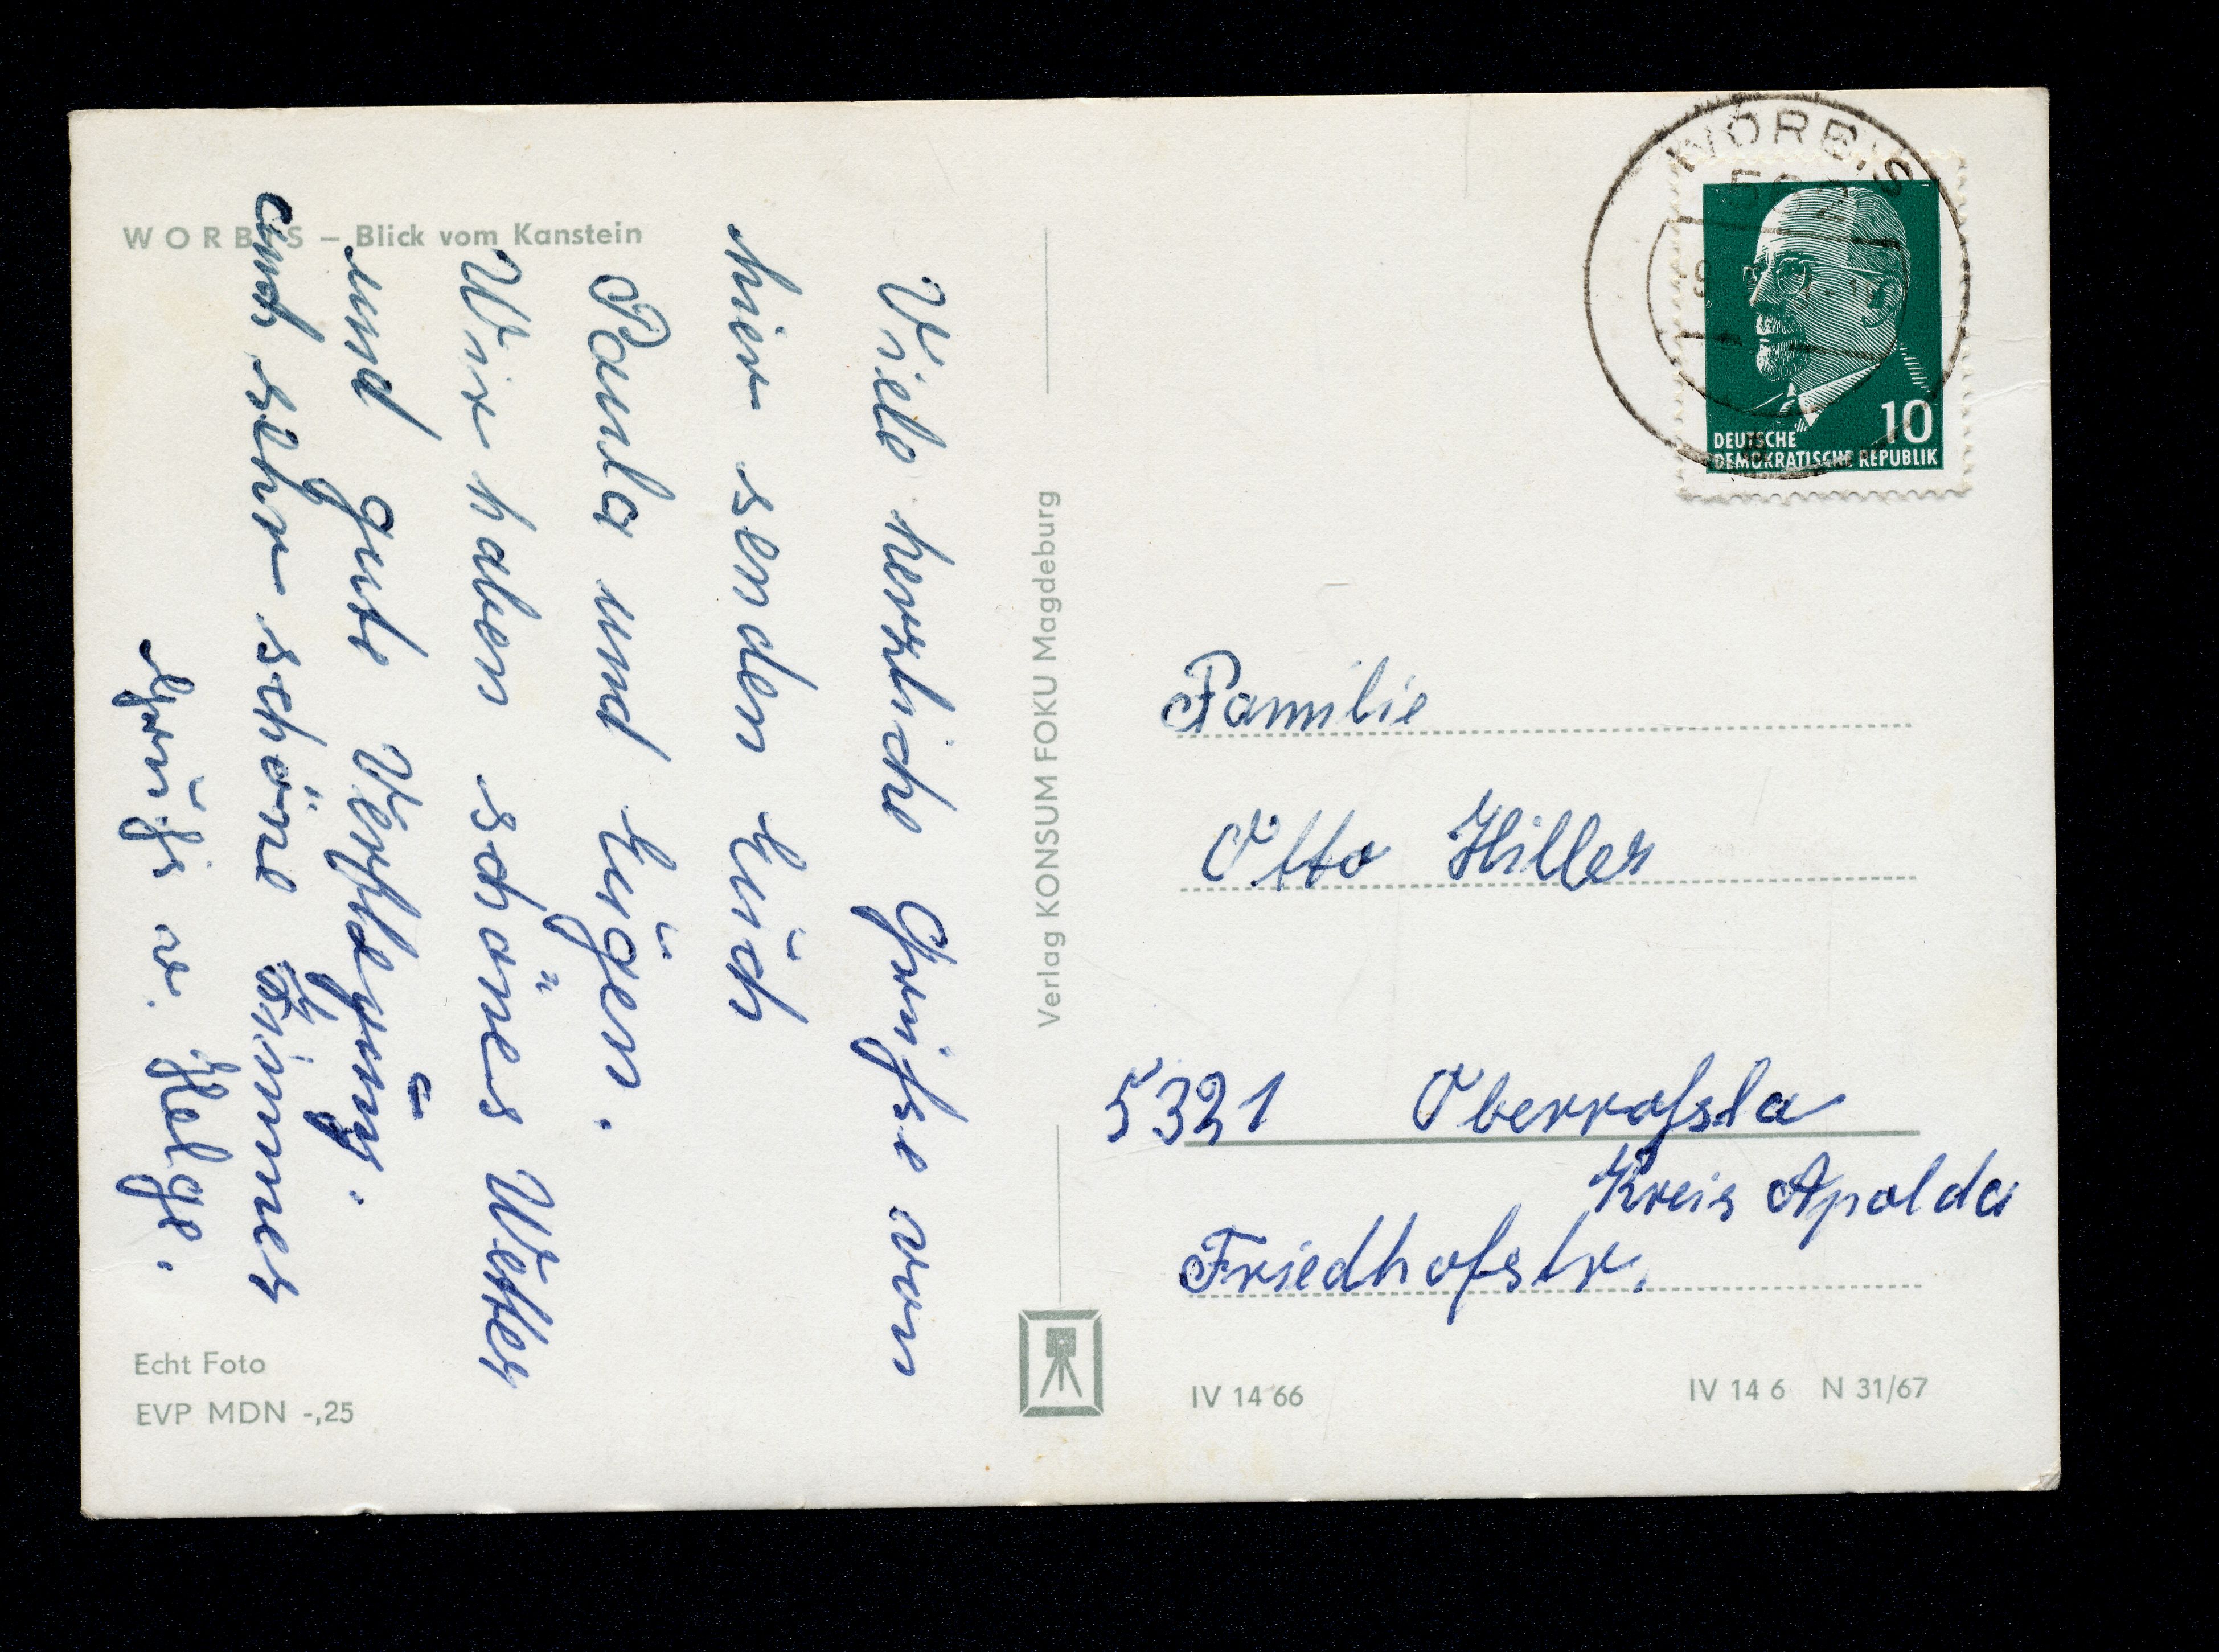 WORBIS – Blick vom Kanstein
Viele herzliche Grüße von
hier senden Euch
Paula und Eugen.
Wir haben schönes Wetter
und gute Verpflegung.
auch sehr schöne Zimmer
Gruß v. Helge.
Echt Foto
EVP MDN -,25
Verlag KONSUM FOKU Magdeburg
WORBIS
562
10
DEUTSCHE
DEMOKRATISCHE REPUBLIK
Familie
Otto Hiller
5321 Oberroßla
Kreis Apolda
Friedhofstr.
IV 14 66
IV 14 6 N 31/67